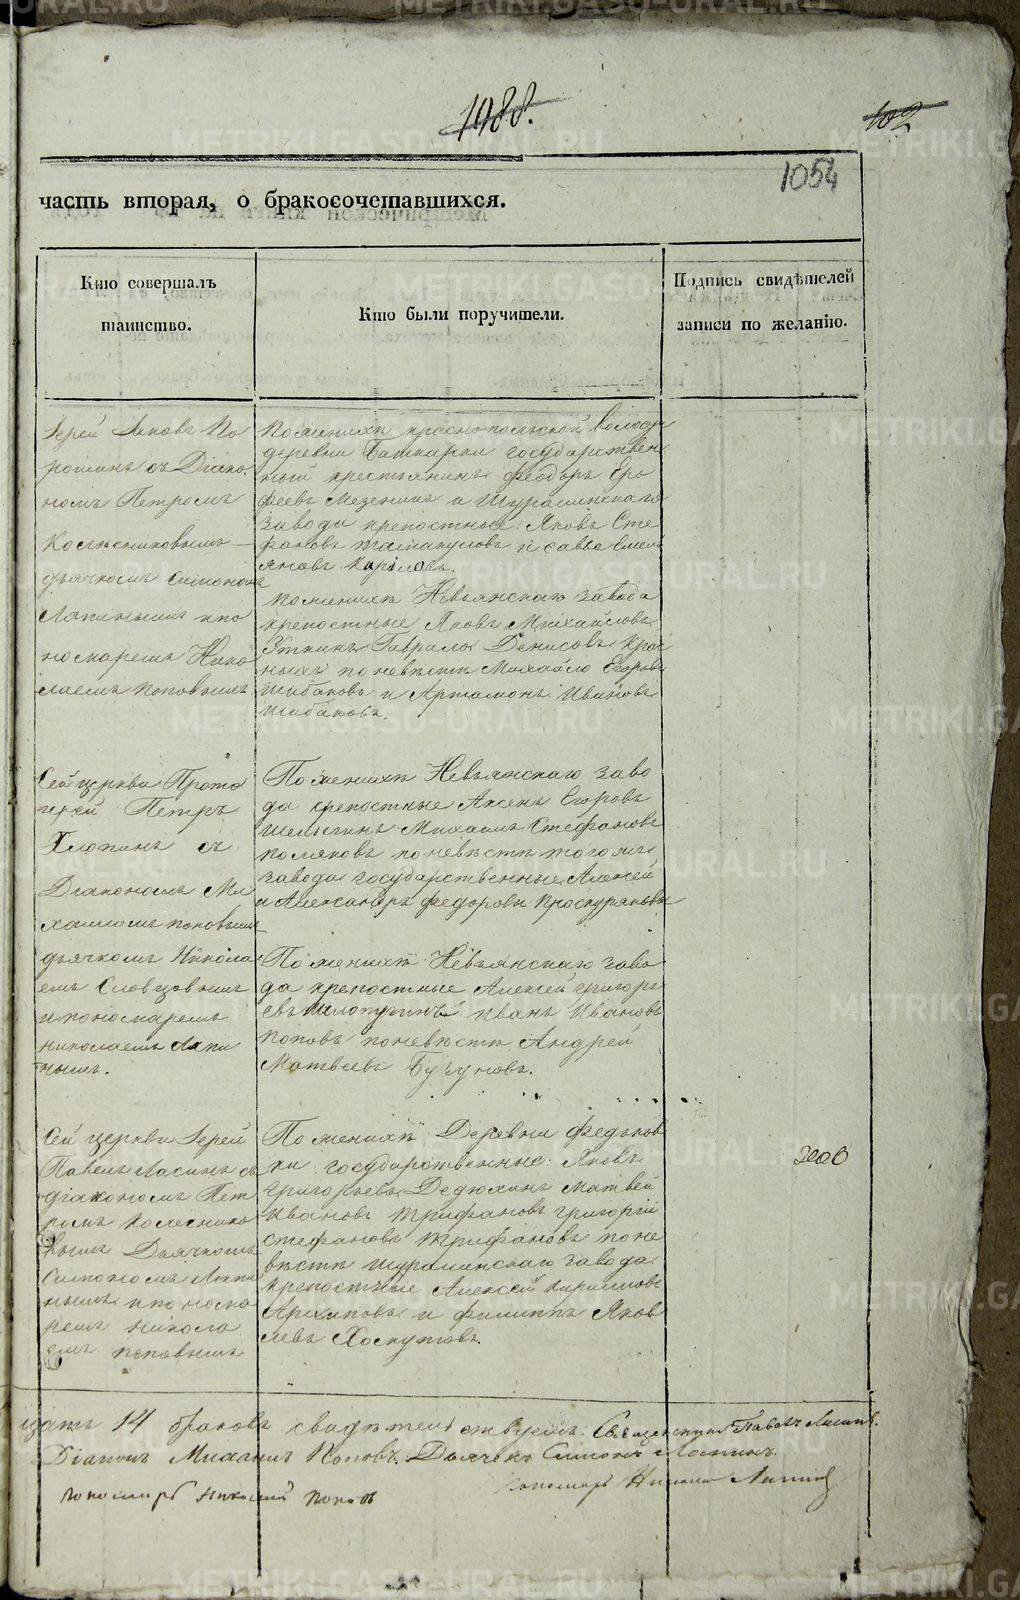 1988.
102
1054
часть вторая, о бракосочетавшихся.
Кто совершалъ
таинство.
Кто были поручители.
Подпись свидѣтелей
записи по желанію.
Іерей Іаковъ По
номъ Петромъ
Колѣсниковымъ
дьячкомъ Симономъ
Лапинымъ и по
номаремъ Нико
лаемъ Поповымъ
По женихѣ краснопольской волости
деревни Башкарки государствен
ный крестьянинъ Феодоръ Еро
феевъ Мезенинъ и Шуралинскаго
завода крепостные Яковъ Сте
фановъ и Савва Емел
яновъ
По женихѣ Невьянскаго завода
крепостные Яковъ Михайловъ
Уткинъ Гаврило Денисовъ Крас
ныхъ по невѣстѣ Михайло Егоровъ
Шибаковъ и Артамонъ Ивановъ
Шибаковъ.
Сей церкви Прото
іерей Петръ
Хлопинъ съ
Діакономъ Ми
хаиломъ Поповымъ
дьячкомъ Никола
емъ Словцовымъ
и пономаремъ
Николаемъ Лапи
нымъ.
По женихѣ Невьянскаго заво
да крепостные Аксенъ Егоровъ
Шелыгинъ Михаилъ Стефановъ
Поляковъ по невѣстѣ того же
завода государственные Алексей
и Александръ Федоровы Проскуряковы
По женихѣ Невьянскаго заво
да крепостные Алексей Григорь
евъ Иванъ Ивановъ
Поповъ по невѣстѣ Андрей
Матвеевъ Бугуновъ.
Сей церкви Іерей
Павелъ Ласинъ съ
діакономъ Пет
ромъ Колеснико
вымъ Дьячкомъ
Симономъ Лапи
нымъ и понома
ремъ Никола
емъ Поповымъ
По женихѣ Деревни Федьков
ки государственные Яковъ
Григорьевъ Дедюхинъ Матвей
Ивановъ Трифановъ Григорій
Стефановъ Трифановъ по не
вѣстѣ Шуралинскаго завода
крепостные Алексей Кириловъ
Архиповъ и Филиппъ Яков
левъ Хомутовъ.
14 браковъ свидѣтельствуемъ: Священникъ Павелъ Ласинъ.
Діаконъ Михаилъ Поповъ. Дьячекъ Симонъ Лапинъ.
Пономарь Николай Поповъ
Пономарь Николай Лапинъ
METRIKI.GASO-URAL.RU